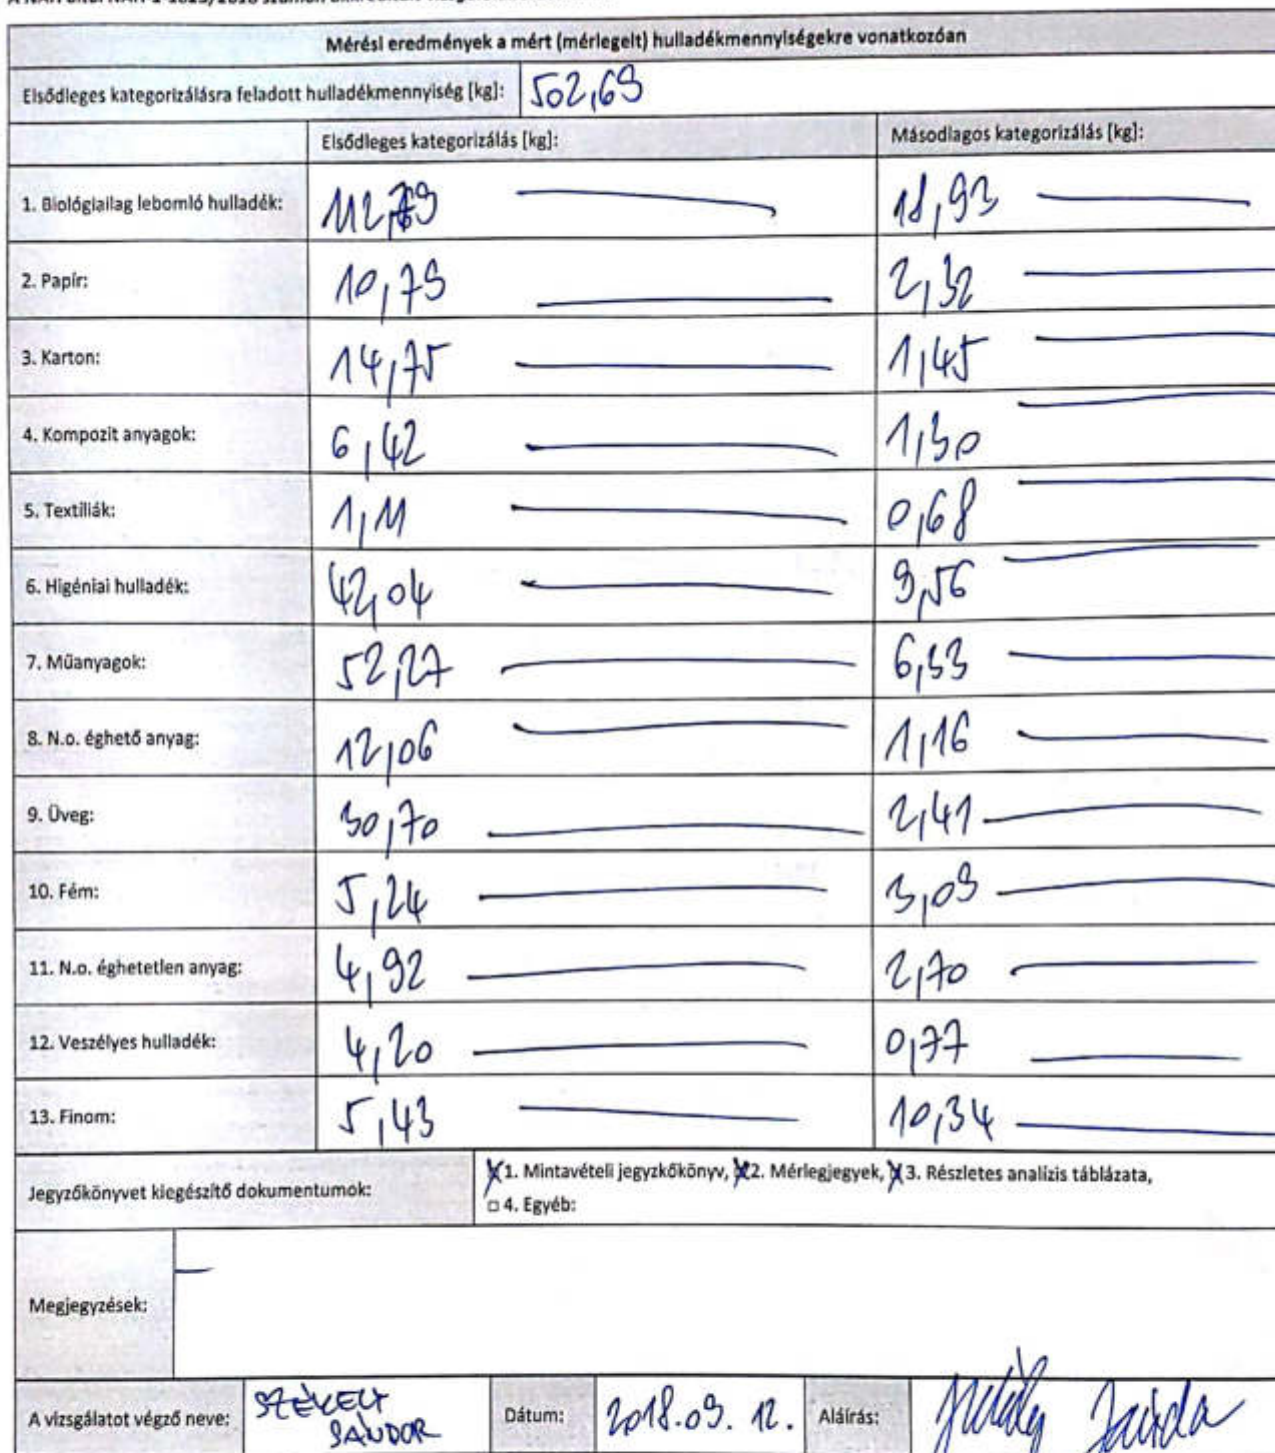 Mérési eredmények a mért (mérlegelt) hulladékmennyiségekre vonatkozóan
Elsődleges kategorizálásra feladott hulladékmennyiség [kg]: 502,69
Elsődleges kategorizálás [kg]: Másodlagos kategorizálás [kg]:
1. Biológiailag lebomló hulladék: 18,93
2. Papír: 10,79 2,32
3. Karton: 14,75 1,45
4. Kompozit anyagok: 6,42 1,30
5. Textiliák: 1,11 0,68
6. Higéniai hulladék: 42,04 9,56
7. Műanyagok: 52,27 6,33
8. N.o. éghető anyag: 12,06 1,16
9. Üveg: 30,70 2,41
10. Fém: 5,24 3,09
11. N.o. éghetetlen anyag: 4,92 2,70
12. Veszélyes hulladék: 4,20 0,77
13. Finom: 5,43 10,34
Jegyzőkönyvet kiegészítő dokumentumok: 1. Mintavételi jegyzkőkönyv, 2. Mérlegjegyek, 3. Részletes analízis táblázata,
□ 4. Egyéb:
Megjegyzések: –
A vizsgálatot végző neve: SZÉKELY SÁNDOR Dátum: 2018.09.12. Aláírás: